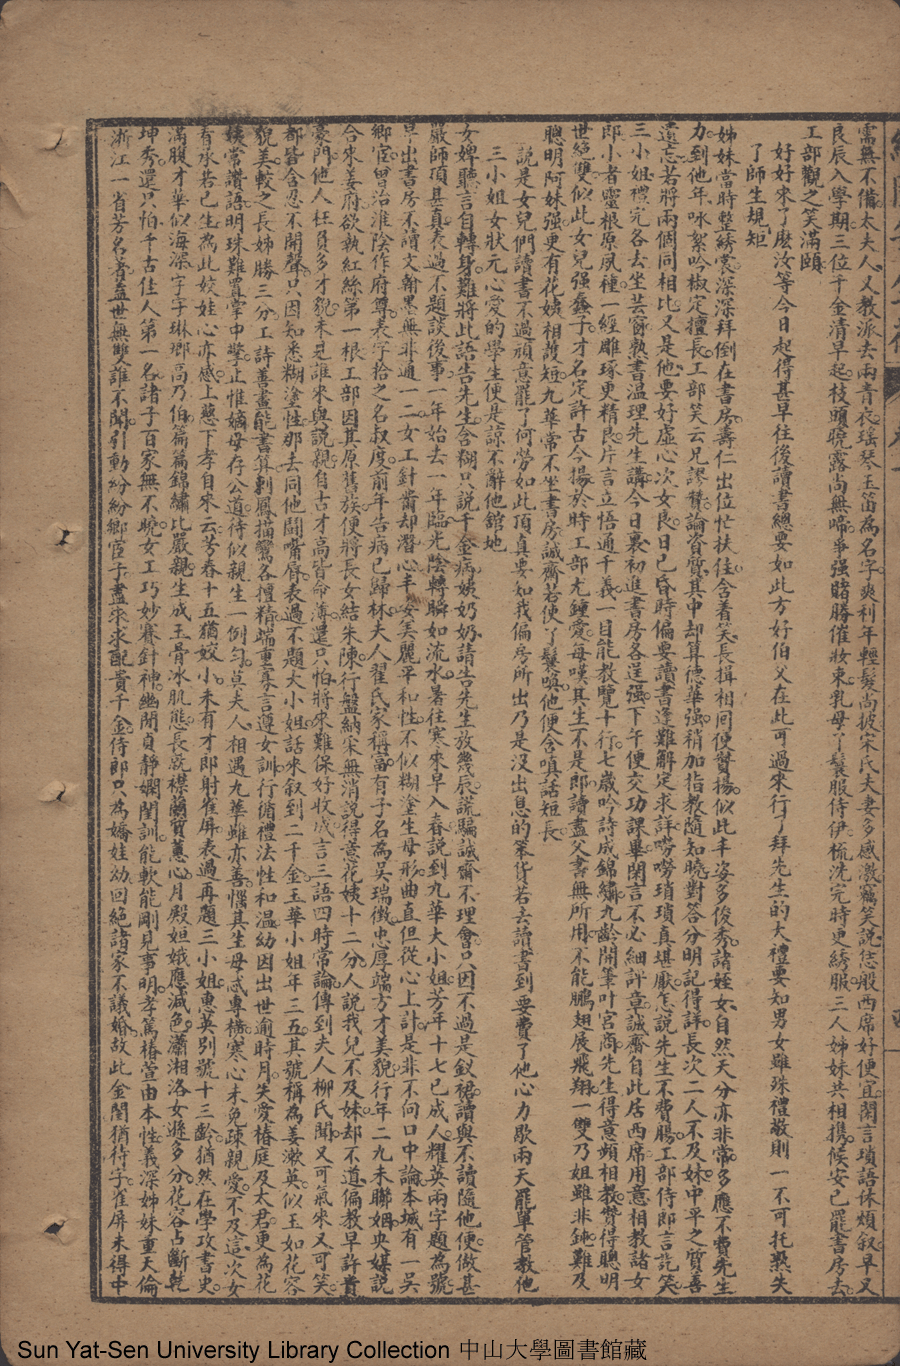 需無不備太夫人又教派去兩青衣瑤琴玉笛為名字爽利年輕髮尚披宋氏夫妻多感激竊笑說恁般西席好便宜閑言瑣語休煩叙早又
良辰入學期三位千金清早起枝頭曉露尚無啼爭强賭勝催妝束乳母丫鬟服侍伊梳洗完時更綉服三人姊妹共相携候安已罷書房去
工部觀之笑滿頤
好好來了麽汝等今日起得甚早往後讀書總要如此方好伯父在此可過來行了拜先生的大禮要知男女雖殊禮敬則一不可托熟失
了師生規矩
姊妹當時整綉裳深深拜倒在書房壽仁出位忙扶住含着笑長揖相同便贊揚似此丰姿多俊秀諸姪女自然天分亦非常多應不費先生
力到他年咏絮吟椒定擅長工部笑云兄謬贊論資質其中却算德華强稍加指教隨知曉對答分明記得詳長次二人不及妹中平之質善
遺忘若將兩個同相比又是他要好虛心次女良日已昏時偏要讀書逢難解定求詳嘮嘮瑣瑣真堪厭乞說先生不費腸工部侍郎言訖笑
三小姐禮完各去坐芸窗熟書溫理先生講今日裏初進書房各逞强下午便交功課畢閑言不必細評章誠齋自此居西席用意相教諸女
郎小者靈根原夙種一經雕琢更精良片言立悟通千義一目能教覽十行七歲吟詩成錦繡九齡開筆叶宮商先生得意頻相教贊得聰明
世絕雙似此女兒强蠢子才名定許古今揚於時工部尤鍾愛每嘆其生不是郎讀盡父書無所用不能鵬翅展飛翔一雙乃姐雖非鈍難及
聰明阿妹强更有花姨相護短九華常不坐書房誠齋若使丫鬟喚他便含嗔話短長
說是女兒們讀書不過頑意罷了何勞如此頂真要知我偏房所出乃是沒出息的笨貨若去讀書到要費了他心力歇兩天罷單管教他
三小姐女狀元心愛的學生便是諒不辭他館地
女婢聽言自轉身難將此語告先生含糊只說千金病姨奶奶請告先生放幾辰謊騙誠齋不理會只因不過是釵裙讀與不讀隨他便做甚
嚴師項甚真表過不題談後事一年始去一年臨光陰轉瞬如流水暑往寒來早入春說到九華大小姐芳年十七已成人耀英兩字題為號
早出書房不讀文翰墨無非通一二女工針黹却潛心丰姿美麗平和性不似糊塗生母形曲直但從心上計是非不向口中論本城有一吳
鄉宦曾治淮陰作府尊表字拾之名叔度前年告病已歸林夫人翟氏家稱富有子名為吳瑞徵忠厚端方才美貌行年二九未聯姻央媒說
合來姜府欲執紅絲第一根工部因其原舊族便將長女結朱陳行盤納采無消說得意花姨十二分人說我兒不及妹却不道偏教早許貴
豪門他人枉負多才貌未見誰來與說親自古才高皆命薄還只怕將來難保好收成言三語四時常論傳到夫人柳氏聞又可氣來又可笑
都皆含忍不開聲只因知悉糊塗性那去同他鬪嘴唇表過不題大小姐話來叙到二千金玉華小姐年三五其號稱為姜漱英似玉如花容
貌美較之長姊勝三分工詩善畫能書算刺鳳描鸞各擅精端重寡言遵女訓行循禮法性和溫幼因出世逾時月失愛椿庭及太君更為花
姨常讚語明珠難置掌中擎止惟嫡母存公道待似親生一例勻莫夫人相遇九華雖亦善惱其生母忒專橫寒心未免疎親愛不及這次女
有承若己生為此姣娃心亦感上慈下孝自來云芳春十五猶姣小未有才郎射雀屏表過再題三小姐惠英別號十三齡猶然在學攻書史
滿腹才華似海深字字琳瑯高乃伯篇篇錦繡比嚴親生成玉骨冰肌態長就襟蘭寶蕙心月殿姮娥應減色瀟湘洛女遜多分花容占斷乾
坤秀還只怕千古佳人第一名諸子百家無不曉女工巧妙賽針神幽閒貞靜嫻閨訓能軟能剛見事明孝篤椿萱由本性義深姊妹重天倫
浙江一省芳名著蓋世無雙誰不聞引動紛紛鄉宦子盡來求配貴千金侍郎只為嬌娃幼回絕諸家不議婚故此金閨猶待字雀屏未得中
Sun Yat-Sen University Library Collection 中山大學圖書館藏